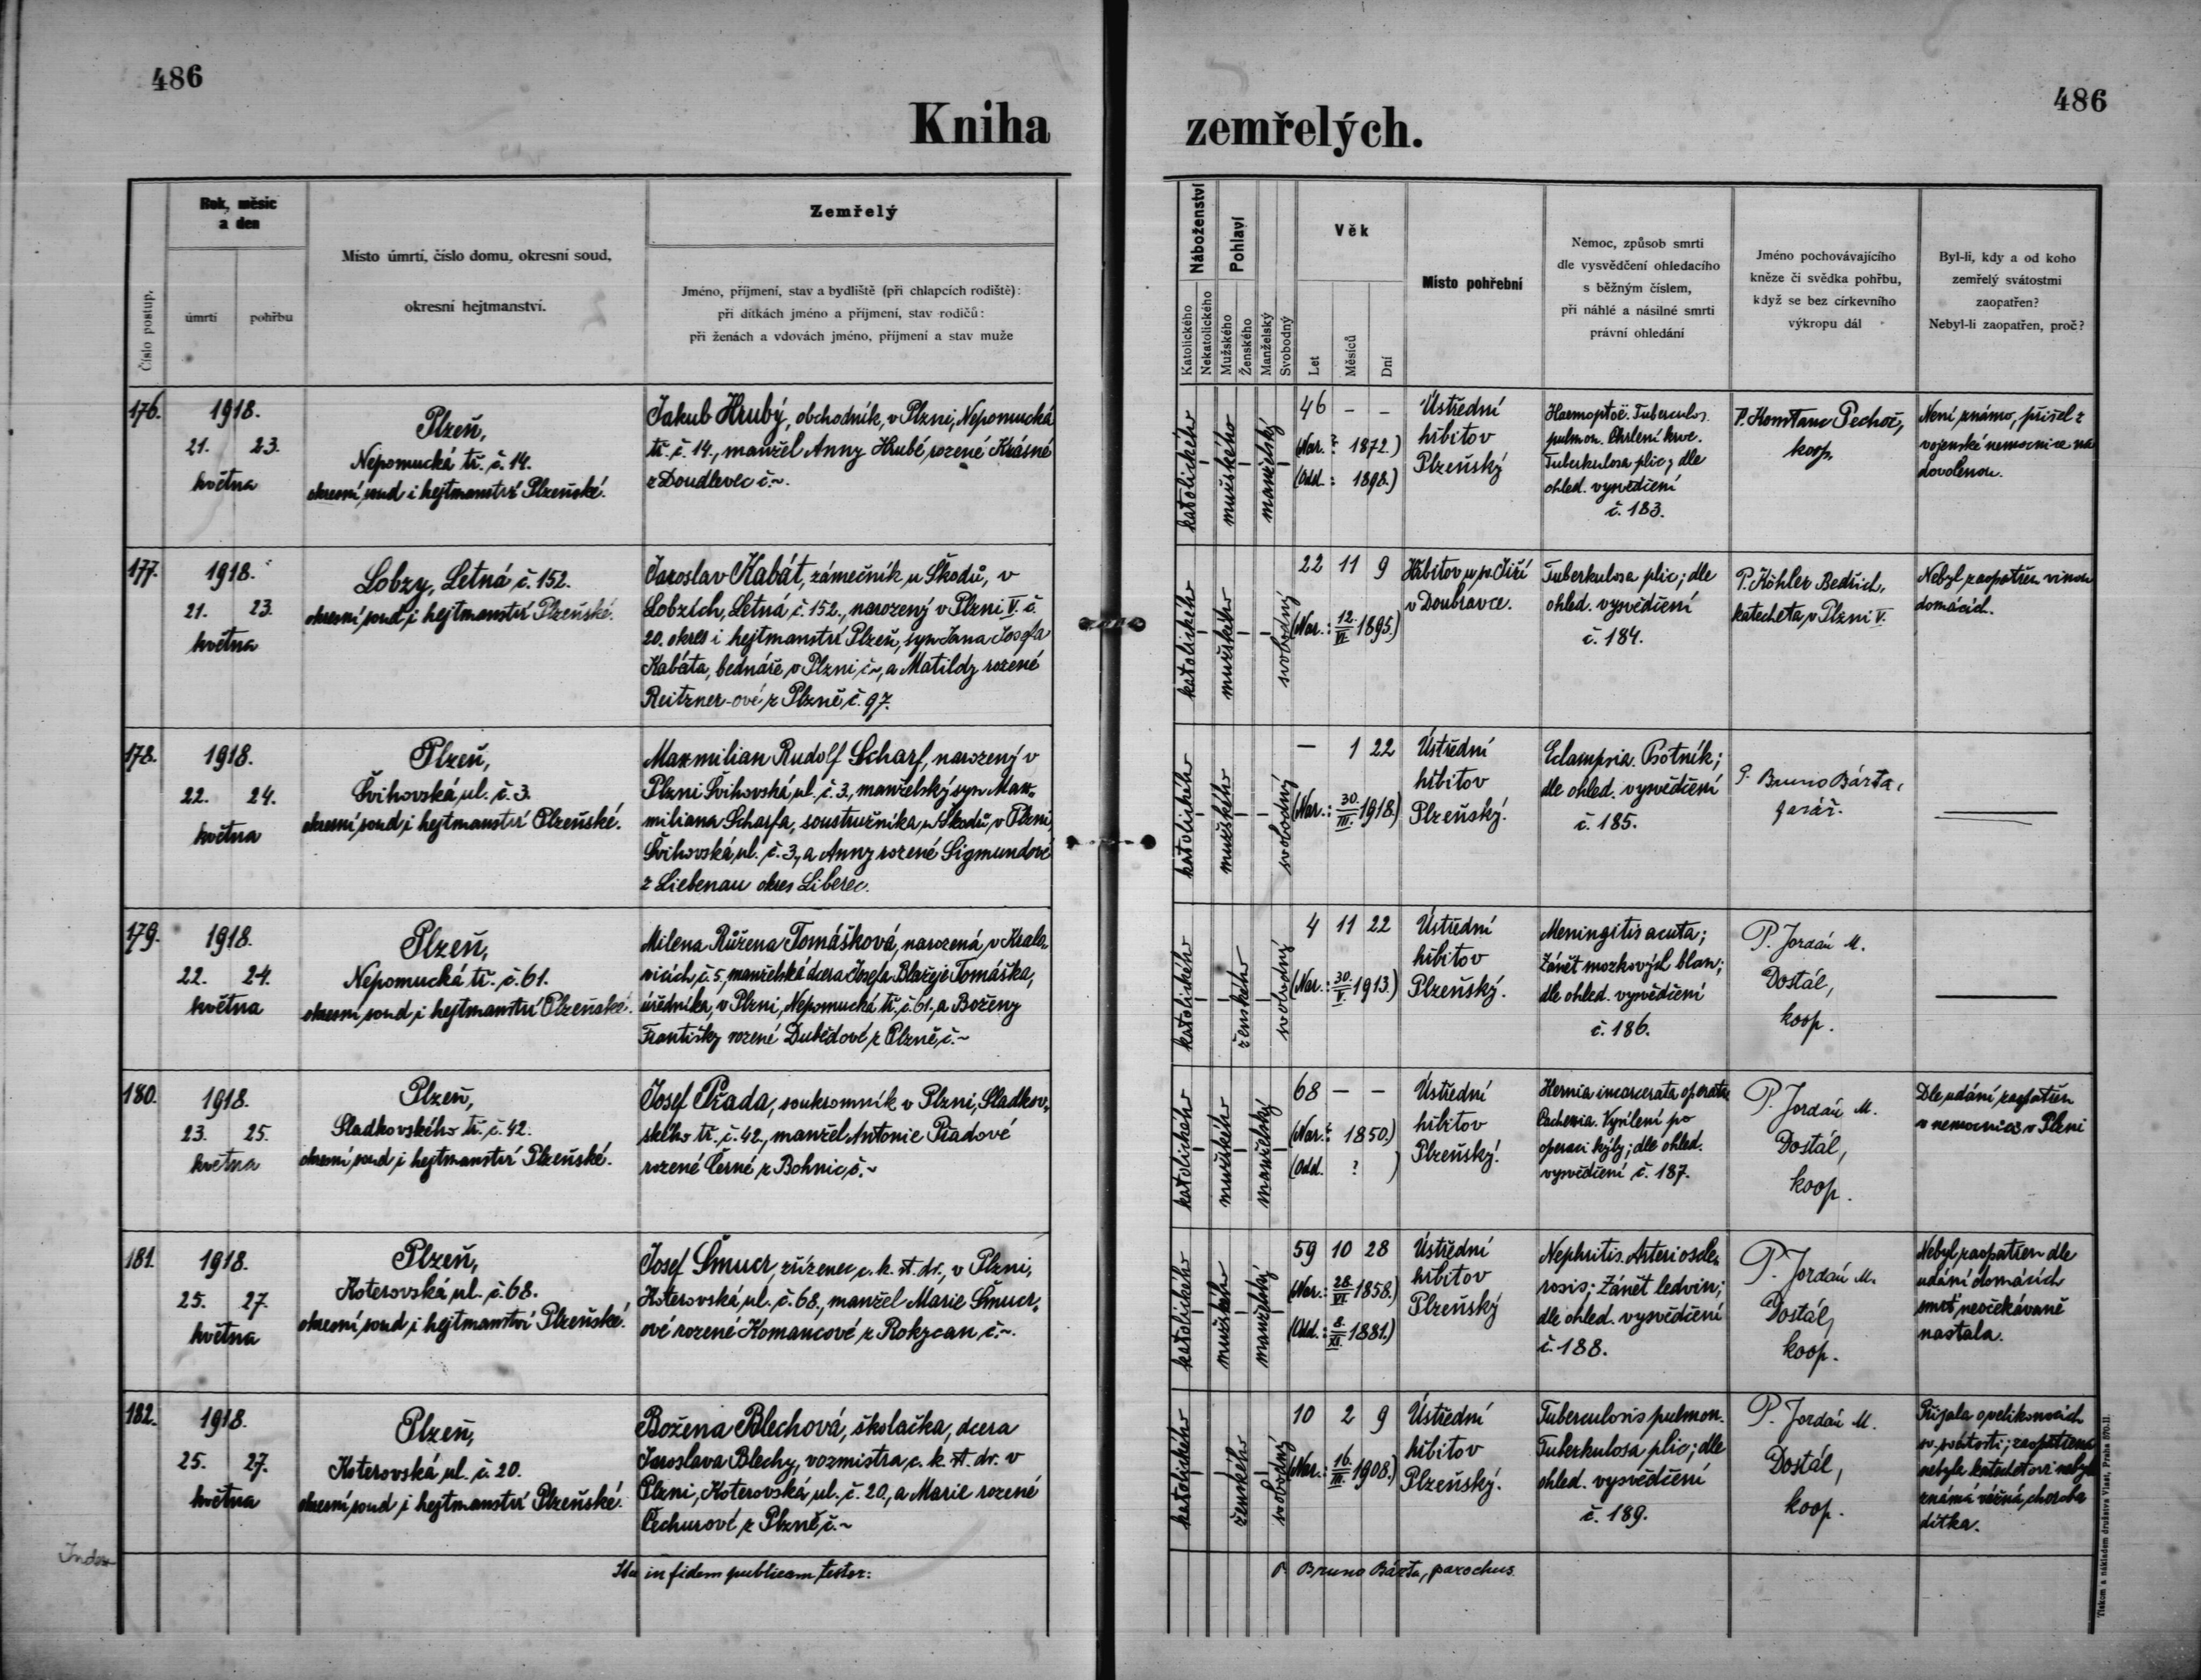 486
486
Kniha zemřelých.
Číslo postup.
Rok, měsíc
a den
úmrtí
pohřbu
Místo úmrtí, číslo domu, okresní soud,
okresní hejtmanství.
Zemřelý
Jméno, příjmení, stav a bydliště (při chlapcích rodiště):
při dítkách jméno a příjmení, stav rodičů:
při ženách a vdovách jméno, příjmení a stav muže
Náboženství
Katolického
Nekatolického
Pohlaví
Mužského
Ženského
Manželský
Svobodný
Věk
Let
Měsíců
Dní
Místo pohřební
Nemoc, způsob smrti
dle vysvědčení ohledacího
s běžným číslem,
při náhlé a násilné smrti
právní ohledání
Jméno pochovávajícího
kněze či svědka pohřbu,
když se bez církevního
výkropu dál
Byl-li, kdy a od koho
zemřelý svátostmi
zaopatřen?
Nebyl-li zaopatřen, proč?
176.
1918.
21. 23.
května
Plzeň,
Nepomucká tř. č. 14.
okresní soud i hejtmanství Plzeňské.
Jakub Hrubý, obchodník, v Plzni, Nepomucká
tř. č. 14., manžel Anny Hrubé, rozené Krásné
z Doudlevec č ~.
katolického
mužského
manželský
46 - -
(Nar. ? 1872.)
(Odd.: 1898.)
Ústřední
hřbitov
Plzeňský
Haemoptoë. Tuberculos.
pulmon. Chrlení krve.
Tuberkulosa plic; dle
ohled. vysvědčení
č. 183.
P. Pechoč,
koop.
Není známo, přišel z
vojenské nemocnice na
dovolenou.
177.
1918.
21. 23.
května
Lobzy, Letná č. 152.
okresní soud i hejtmanství Plzeňské.
Jaroslav Kabát, zámečník u Škodů, v
Lobzích, Letná č. 152., narozený v Plzni V. č.
20. okres i hejtmanství Plzeň, syn Jana Josefa
Kabáta, bednáře, v Plzni, č ~, a Matildy rozené
Reitzner-ové z Plzně, č. 97.
katolického
mužského
svobodný
22 11 9
(Nar.: 12./VI. 1895.)
Hřbitov u sv. Jiří
v Doubravce.
Tuberkulosa plic; dle
ohled. vysvědčení
č. 184.
P. Köhler Bedřich,
katecheta, v Plzni V.
Nebyl zaopatřen vinou
domácích.
178.
1918.
22. 24.
května
Plzeň,
Švihovská, ul. č. 3.
okresní soud i hejtmanství Plzeňské.
Maxmilian Rudolf Scharf, narozený v
Plzni Švihovská, ul. č. 3., manželský syn Max-
miliana Scharfa, soustružníka, u Škodů, v Plzni,
Švihovská, ul. č. 3., a Anny rozené Sigmundové
z Liebenau okres Liberec.
katolického
mužského
svobodný
— 1 22
(Nar.: 30./III. 1918.)
Ústřední
hřbitov
Plzeňský.
Eclampsia. Psotník;
dle ohled. vysvědčení
č. 185.
P. Bruno Bárta,
farář.
179.
1918.
22. 24.
května
Plzeň,
Nepomucká tř. č. 61.
okresní soud i hejtmanství Plzeňské.
Milena Růžena Tomášková, narozená v Kralo-
vicích, č. 5., manželská dcera Josefa Blažeje Tomáška,
úředníka, v Plzni, Nepomucká tř. č. 61., a Boženy
Františky rozené Dubědové z Plzně, č. ~
katolického
ženského
svobodný
4 11 22
(Nar.: 30./V. 1913.)
Ústřední
hřbitov
Plzeňský.
Meningitis acuta;
Zánět mozkových blan;
dle ohled. vysvědčení
č. 186.
P. Jordán M.
Dostál,
koop.
180.
1918.
23. 25.
května
Plzeň,
Sladkovského tř. č. 42.
okresní soud i hejtmanství Plzeňské.
Josef Přada, soukromník v Plzni, Sladkov-
ského tř. č. 42., manžel Antonie Přadové
rozené Černé z Bohnic, č. ~
katolického
mužského
manželský
68 — —
(Nar. ? 1850.)
(Odd. ? )
Ústřední
hřbitov
Plzeňský.
Hernia incarcerata operata
Cachexia. Vysílení po
operaci kýly; dle ohled.
vysvědčení č. 187.
P. Jordán M.
Dostál,
koop.
Dle udání zaopatřen
v nemocnici v Plzni
181.
1918.
25. 27.
května
Plzeň,
Koterovská, ul. č. 68.
okresní soud i hejtmanství Plzeňské.
Josef Šmucr, zřízenec c. k. st. dr., v Plzni,
Koterovská, ul. č. 68., manžel Marie Šmucr-
ové rozené Komancové z Rokycan, č. ~.
katolického
mužského
manželský
59 10 28
(Nar.: 28./VI. 1858.)
(Odd.: 8./XI. 1881.)
Ústřední
hřbitov
Plzeňský
Nephritis. Arterioscle-
rosis; Zánět ledvin;
dle ohled. vysvědčení
č. 188.
P. Jordán M.
Dostál,
koop.
Nebyl zaopatřen dle
udání domácích
smrt neočekávaně
nastala.
182.
1918.
25. 27.
května
Plzeň,
Koterovská ul. č. 20.
okresní soud i hejtmanství Plzeňské.
Božena Blechová, školačka, dcera
Jaroslava Blechy, vozmistra, c. k. st. dr. v
Plzni, Koterovská, ul. č. 20., a Marie rozené
Čechurové z Plzně, č. ~
katolického
ženského
svobodný
10 2 9
(Nar.: 16./III. 1908.)
Ústřední
hřbitov
Plzeňský.
Tuberculosis pulmon.
Tuberkulosa plic; dle
ohled. vysvědčení
č. 189.
P. Jordán M.
Dostál,
koop.
Přijala o velikonocích
sv. svátosti; zaopatřena
nebyla katechetovi nebyla
známá vážná choroba
dítka.
Index
Ita in fidem publicam testor:
P. Bruno Bárta, parochus.
Tiskem a nákladem družstva Vlast, Praha 570-II.